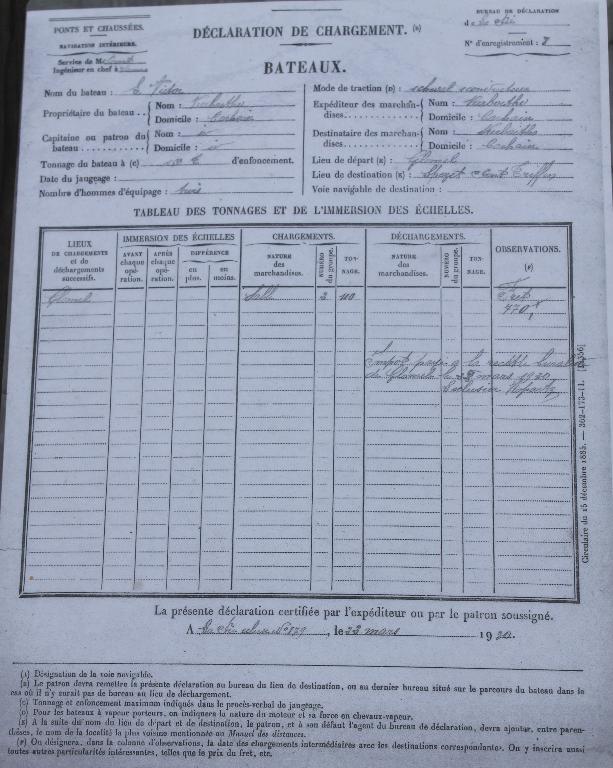 PONTS ET CHAUSSÉES.
NAVIGATION INTÉRIEURE.
Service de M
Ingénieur en chef à
DÉCLARATION DE CHARGEMENT. (B)
BATEAUX.
BUREAU DE DÉCLARATION
d
N° d'enregistrement : 7
Nom du bateau : Victor
Propriétaire du bateau .. Nom :
Domicile :
Capitaine ou patron du bateau .......... Nom :
Domicile :
Tonnage du bateau à (C) d'enfoncement.
Date du jaugeage :
Nombre d'hommes d'équipage : trois
Mode de traction (D) :
Expéditeur des marchandises. Nom :
Domicile : Carhaix
Destinataire des marchandises. Nom :
Domicile : Carhaix
Lieu de départ (E) : Glomel
Lieu de destination (E) :
Voie navigable de destination :
TABLEAU DES TONNAGES ET DE L'IMMERSION DES ÉCHELLES.
LIEUX DE CHARGEMENTS et de déchargements successifs.
IMMERSION DES ÉCHELLES
AVANT chaque opération.
APRÈS chaque opération.
DIFFÉRENCE
en plus.
en moins.
CHARGEMENTS.
NATURE des marchandises.
NUMÉRO du groupe.
TONNAGE.
DÉCHARGEMENTS.
NATURE des marchandises.
NUMÉRO du groupe.
TONNAGE.
OBSERVATIONS.
(F)
Glomel
Fret
Impôt payé à la recette
de Glomel le 22 mars 1920
Circulaire du 15 décembre 1885. — 362-173-11.
La présente déclaration certifiée par l'expéditeur ou par le patron soussigné.
A , le 22 mars 1920.
(A) Désignation de la voie navigable.
(B) Le patron devra remettre la présente déclaration au bureau du lieu de destination, ou au dernier bureau situé sur le parcours du bateau dans le
cas où il n'y aurait pas de bureau au lieu de déchargement.
(C) Tonnage et enfoncement maximum indiqués dans le procès-verbal de jaugeage.
(D) Pour les bateaux à vapeur porteurs, on indiquera la nature du moteur et sa force en chevaux-vapeur.
(E) A la suite du nom du lieu de départ et de destination, le patron, et à son défaut l'agent du bureau de déclaration, devra ajouter, entre paren-
thèses, le nom de la localité la plus voisine mentionnée au Manuel des distances.
(F) On désignera, dans la colonne d'observations, la date des chargements intermédiaires avec les destinations correspondantes. On y inscrira aussi
toutes autres particularités intéressantes, telles que le prix du fret, etc.